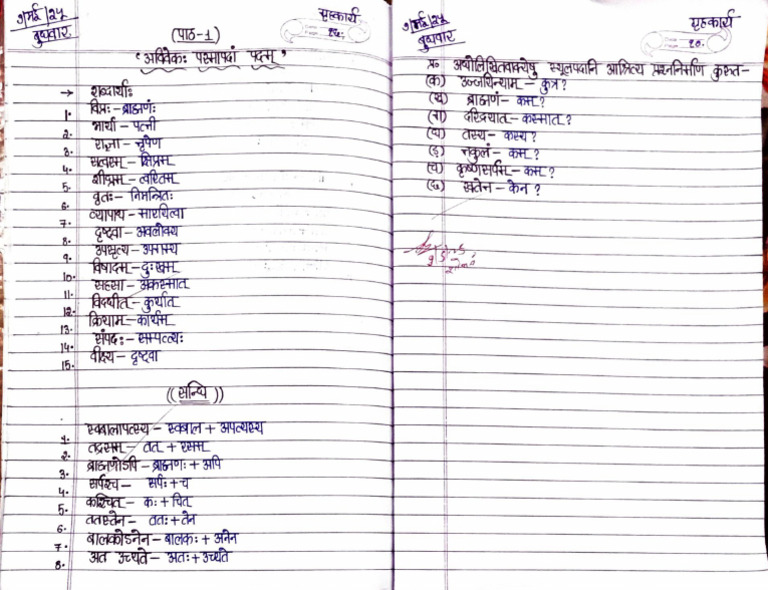 ७/मई/२५
बुधवार
गृहकार्य
Page
(पाठ-1)
'अविवेकः परमापदां पदम्'
→ शब्दार्थाः
1. विप्रः - ब्राह्मणः
2. भार्या - पत्नी
3. राज्ञा - नृपेण
4. सत्वरम् - क्षिप्रम्
5. शीघ्रम् - त्वरितम्
6. वृतः - निमन्त्रितः
7. व्यापाद्य - मारयित्वा
8. दृष्ट्वा - अवलोक्य
9. उपसृत्य - उपगम्य
10. विषादम् - दुःखम्
11. सहसा - अकस्मात्
12. विदधीत - कुर्यात
13. क्रियाम् - कार्यम्
14. संपदः - सम्पत्त्यः
15. वीक्ष्य - दृष्ट्वा
((सन्धि))
1. स्वबालापत्यस्य - स्वबाल + अपत्यस्य
2. तद्रसम् - तत् + रसम्
3. ब्राह्मणोऽपि - ब्राह्मणः + अपि
4. सर्पश्च - सर्पः + च
5. कश्चित् - कः + चित्
6. ततस्तेन - ततः + तेन
7. बालकोऽनेन - बालकः + अनेन
8. अत उच्यते - अतः + उच्यते
७/मई/२५
बुधवार
गृहकार्य
Page 20.
प्र० अधोलिखितवाक्येषु स्थूलपदानि आश्रित्य प्रश्ननिर्माणं कुरुत-
(क) उज्जयिन्याम् - कुत्र?
(ख) ब्राह्मणं - कम्?
(ग) दारिद्रयात् - कस्मात्?
(घ) तस्य - कस्य?
(ङ) नकुलं - कम्?
(च) कृष्णसर्पम् - कम्?
(छ) स्वतेन - केन?